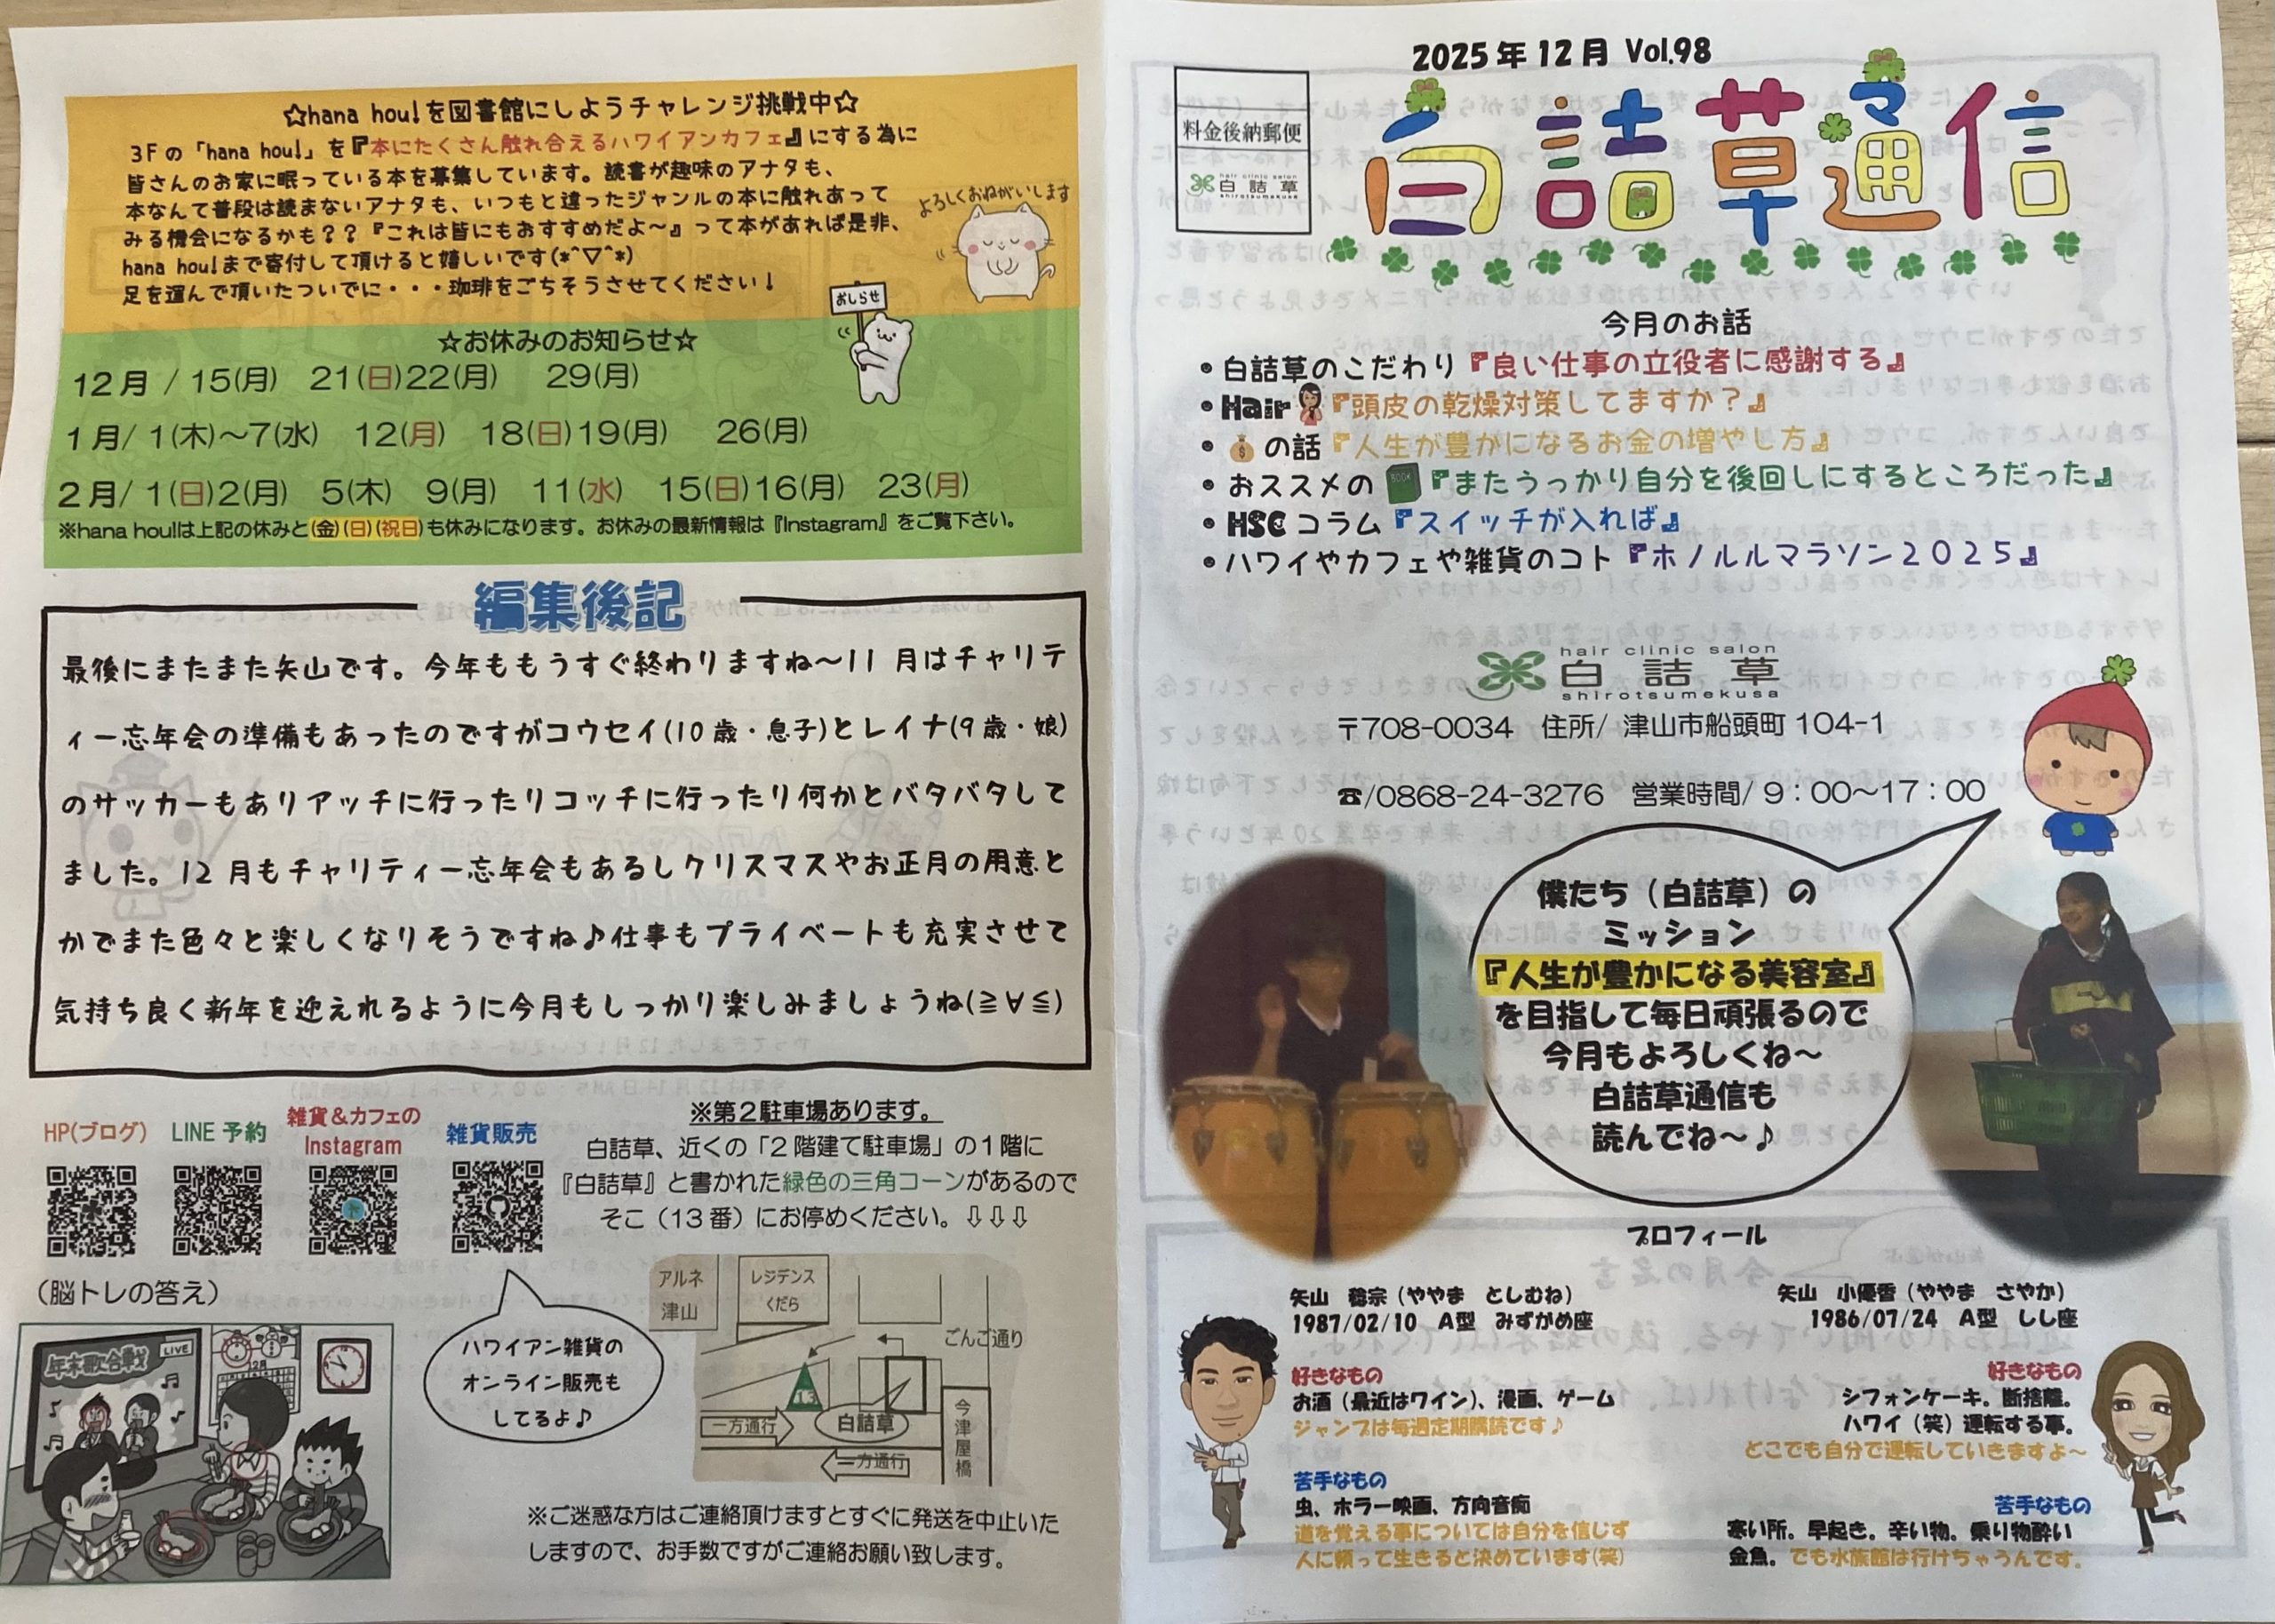 ☆hana hou!を図書館にしようチャレンジ挑戦中☆
3Fの「hana hou!」を『本にたくさん触れ合えるハワイアンカフェ』にする為に
皆さんのお家に眠っている本を募集しています。読書が趣味のアナタも、
本なんて普段は読まないアナタも、いつもと違ったジャンルの本に触れあって
みる機会になるかも？？『これは皆にもおすすめだよ～』って本があれば是非、
hana hou!まで寄付して頂けると嬉しいです(*^▽^*)
足を運んで頂いたついでに・・・珈琲をごちそうさせてください！
よろしくおねがいします
おしらせ
☆お休みのお知らせ☆
12月 / 15(月) 21(日)22(月) 29(月)
1月/ 1(木)～7(水) 12(月) 18(日)19(月) 26(月)
2月/ 1(日)2(月) 5(木) 9(月) 11(水) 15(日)16(月) 23(月)
※hana hou!は上記の休みと(金)(日)(祝日)も休みになります。お休みの最新情報は『Instagram』をご覧下さい。
編集後記
最後にまたまた矢山です。今年ももうすぐ終わりますね～11月はチャリテ
ィー忘年会の準備もあったのですがコウセイ(10歳・息子)とレイナ(9歳・娘)
のサッカーもありアッチに行ったりコッチに行ったり何かとバタバタして
ました。12月もチャリティー忘年会もあるしクリスマスやお正月の用意と
かでまた色々と楽しくなりそうですね♪仕事もプライベートも充実させて
気持ち良く新年を迎えれるように今月もしっかり楽しみましょうね(≧∀≦)
HP(ブログ)
LINE予約
雑貨＆カフェの
Instagram
雑貨販売
※第2駐車場あります。
白詰草、近くの「2階建て駐車場」の1階に
『白詰草』と書かれた緑色の三角コーンがあるので
そこ（13番）にお停めください。⇩⇩⇩
（脳トレの答え）
年末歌合戦
LIVE
12月
ハワイアン雑貨の
オンライン販売も
してるよ♪
アルネ
津山
レジデンス
くだら
ごんご通り
13
一方通行
白詰草
一方通行
今津屋橋
※ご迷惑な方はご連絡頂けますとすぐに発送を中止いた
しますので、お手数ですがご連絡お願い致します。
2025年12月 Vol.98
料金後納郵便
hair clinic salon
白詰草
shirotsumekusa
白詰草通信
今月のお話
・白詰草のこだわり『良い仕事の立役者に感謝する』
・Hair『頭皮の乾燥対策してますか？』
・の話『人生が豊かになるお金の増やし方』
・おススメのBOOK『またうっかり自分を後回しにするところだった』
・HSCコラム『スイッチが入れば』
・ハワイやカフェや雑貨のコト『ホノルルマラソン2025』
hair clinic salon
白詰草
shirotsumekusa
〒708-0034 住所/ 津山市船頭町104-1
☎/0868-24-3276 営業時間/ 9：00～17：00
僕たち（白詰草）の
ミッション
『人生が豊かになる美容室』
を目指して毎日頑張るので
今月もよろしくね～
白詰草通信も
読んでね～♪
プロフィール
矢山 穂宗（ややま としむね）
1987/02/10 A型 みずがめ座
好きなもの
お酒（最近はワイン）、漫画、ゲーム
ジャンプは毎週定期購読です♪
苦手なもの
虫、ホラー映画、方向音痴
道を覚える事については自分を信じず
人に頼って生きると決めています(笑)
矢山 小優香（ややま さやか）
1986/07/24 A型 しし座
好きなもの
シフォンケーキ。断捨離。
ハワイ（笑）運転する事。
どこでも自分で運転していきますよ～
苦手なもの
寒い所。早起き。辛い物。乗り物酔い
金魚。でも水族館は行けちゃうんです。